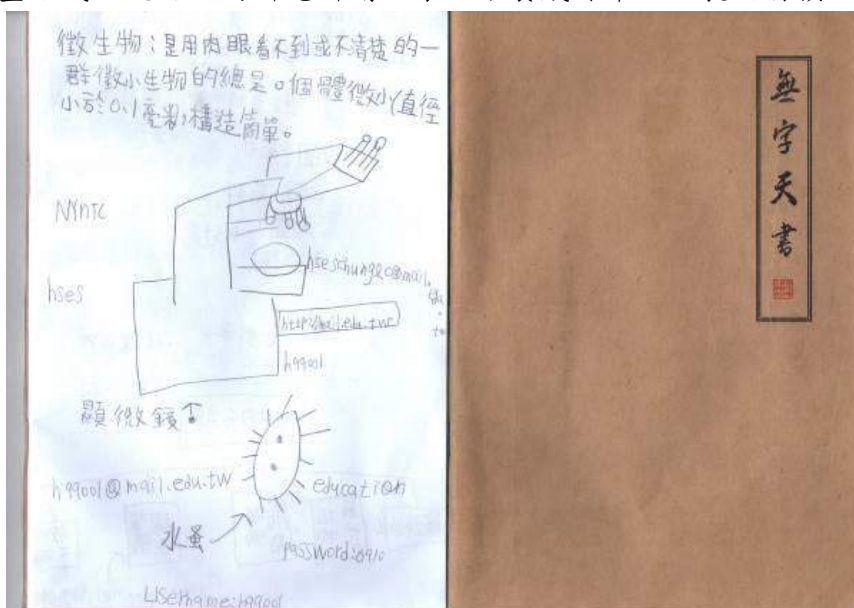 微生物:是用肉眼看不到或不清楚的一
群微小生物的總是。個體微小(直徑
小於0.1毫米),構造簡單。
NYntc
hses
http://mail.edu.tw
h99001
顯微鏡↑
h99001@mail.edu.tw
education
水蚤
password:0910
Username:h99001
無字天書